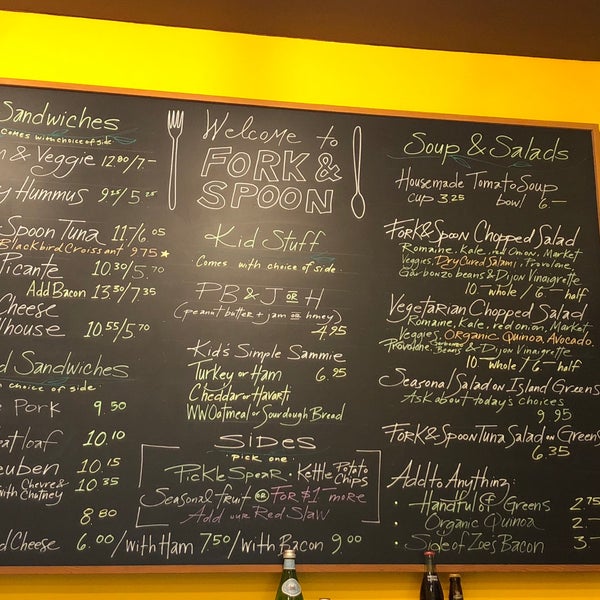 Sandwiches
Comes with choice of side
& Veggie 12.80/7.-
Hummus 9.25/5.25
Spoon Tuna 11.-/6.05
Blackbird Croissant 9.75 ★
Picante 10.30/5.70
Add Bacon 13.30/7.35
Cheese
house 10.55/5.70
Sandwiches
choice of side
Pork 9.50
loaf 10.10
euben 10.15
Chevre & 10.35
with Chutney
8.80
Cheese 6.00/with Ham 7.50/with Bacon 9.00
Welcome to
FORK &
SPOON
Kid Stuff
Comes with choice of side.
PB & J or H
(peanut butter + jam or honey)
4.95
Kid's Simple Sammie
Turkey or Ham 6.95
Cheddar or Havarti
WW Oatmeal or Sourdough Bread
Sides
pick one
Pickle Spear · Kettle Potato Chips
Seasonal fruit or For $1 more
Add our Red Slaw
Soup & Salads
Housemade Tomato Soup
cup 3.25 bowl 6.-
Fork & Spoon Chopped Salad
Romaine, Kale, red onion, Market
Veggies, Dry Cured Salami, Provolone,
Garbonzo beans & Dijon Vinaigrette
10.-whole / 6.-half
Vegetarian Chopped Salad
Romaine, Kale, red onion, Market
Veggies, Organic Quinoa, Avocado,
Provolone, Beans & Dijon Vinaigrette
10.-whole / 6.-half
Seasonal Salad on Island Greens
Ask about today's choices
9.95
Fork & Spoon Tuna Salad on Greens
6.35
Add to Anything:
· Handful of Greens 2.75
· Organic Quinoa 2.-
· Side of Zoe's Bacon 3.-